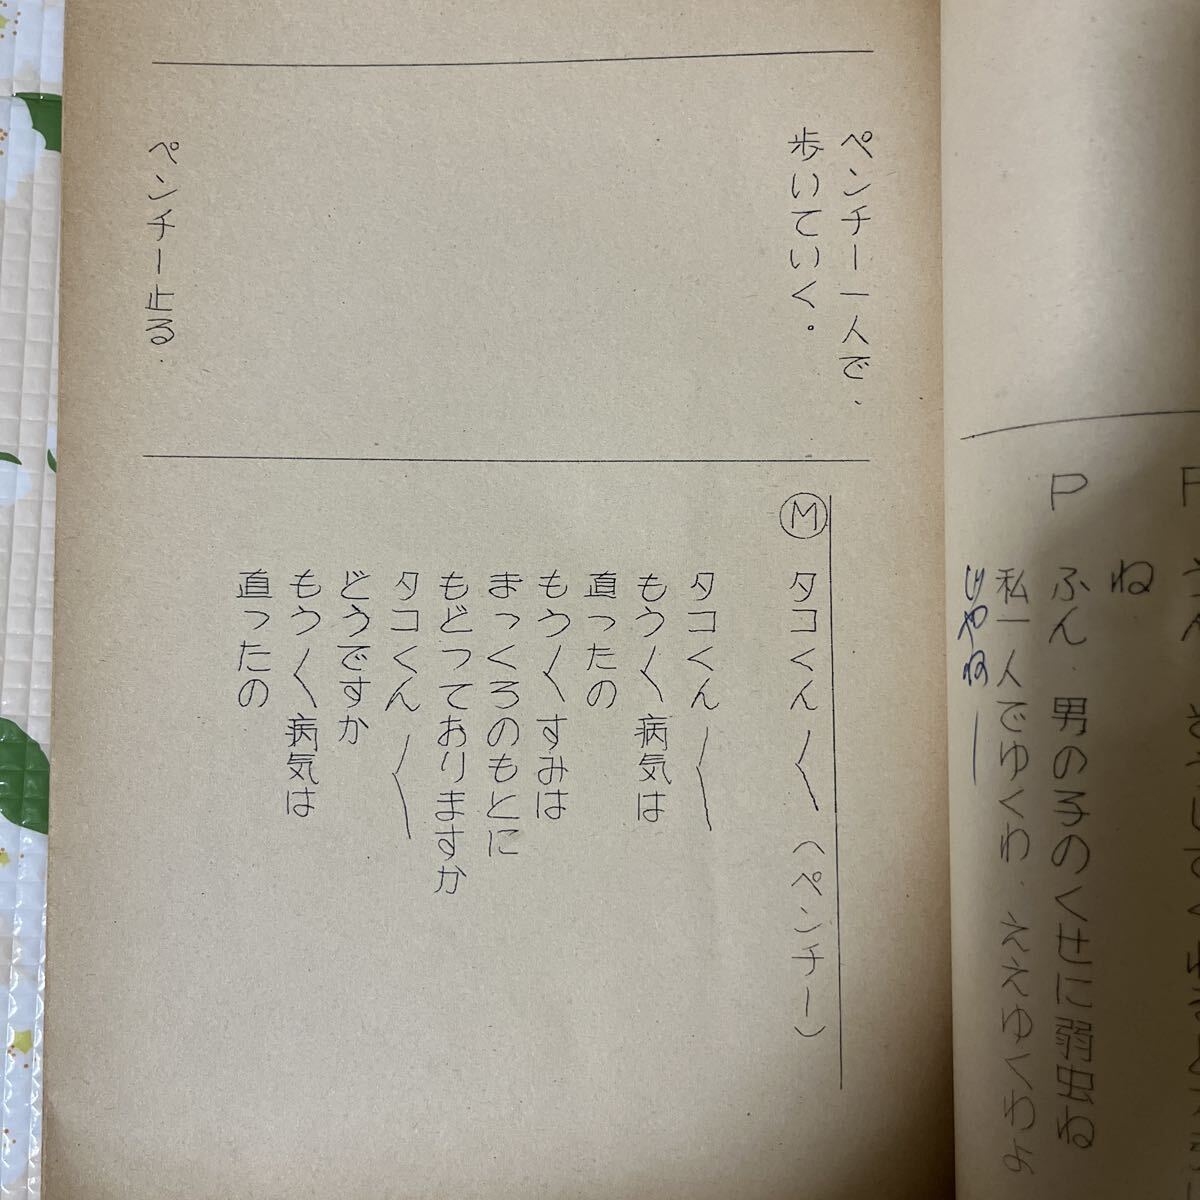 ね
P ふん．男の子のくせに弱虫ね
私一人でゆくわ．ええゆくわよ
じゃねー
ペンチー一人で．
歩いていく。
ペンチー止る．
Ⓜ タコくん〱（ペンチー）
タコくん〱
もう〱病気は
直ったの
もう〱すみは
まっくろのもとに
もどっておりますか
タコくん〱
どうですか
もう〱病気は
直ったの